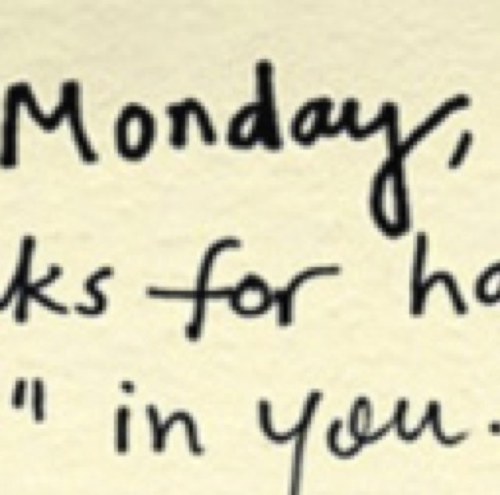 Monday,
ks for ha
" in you.